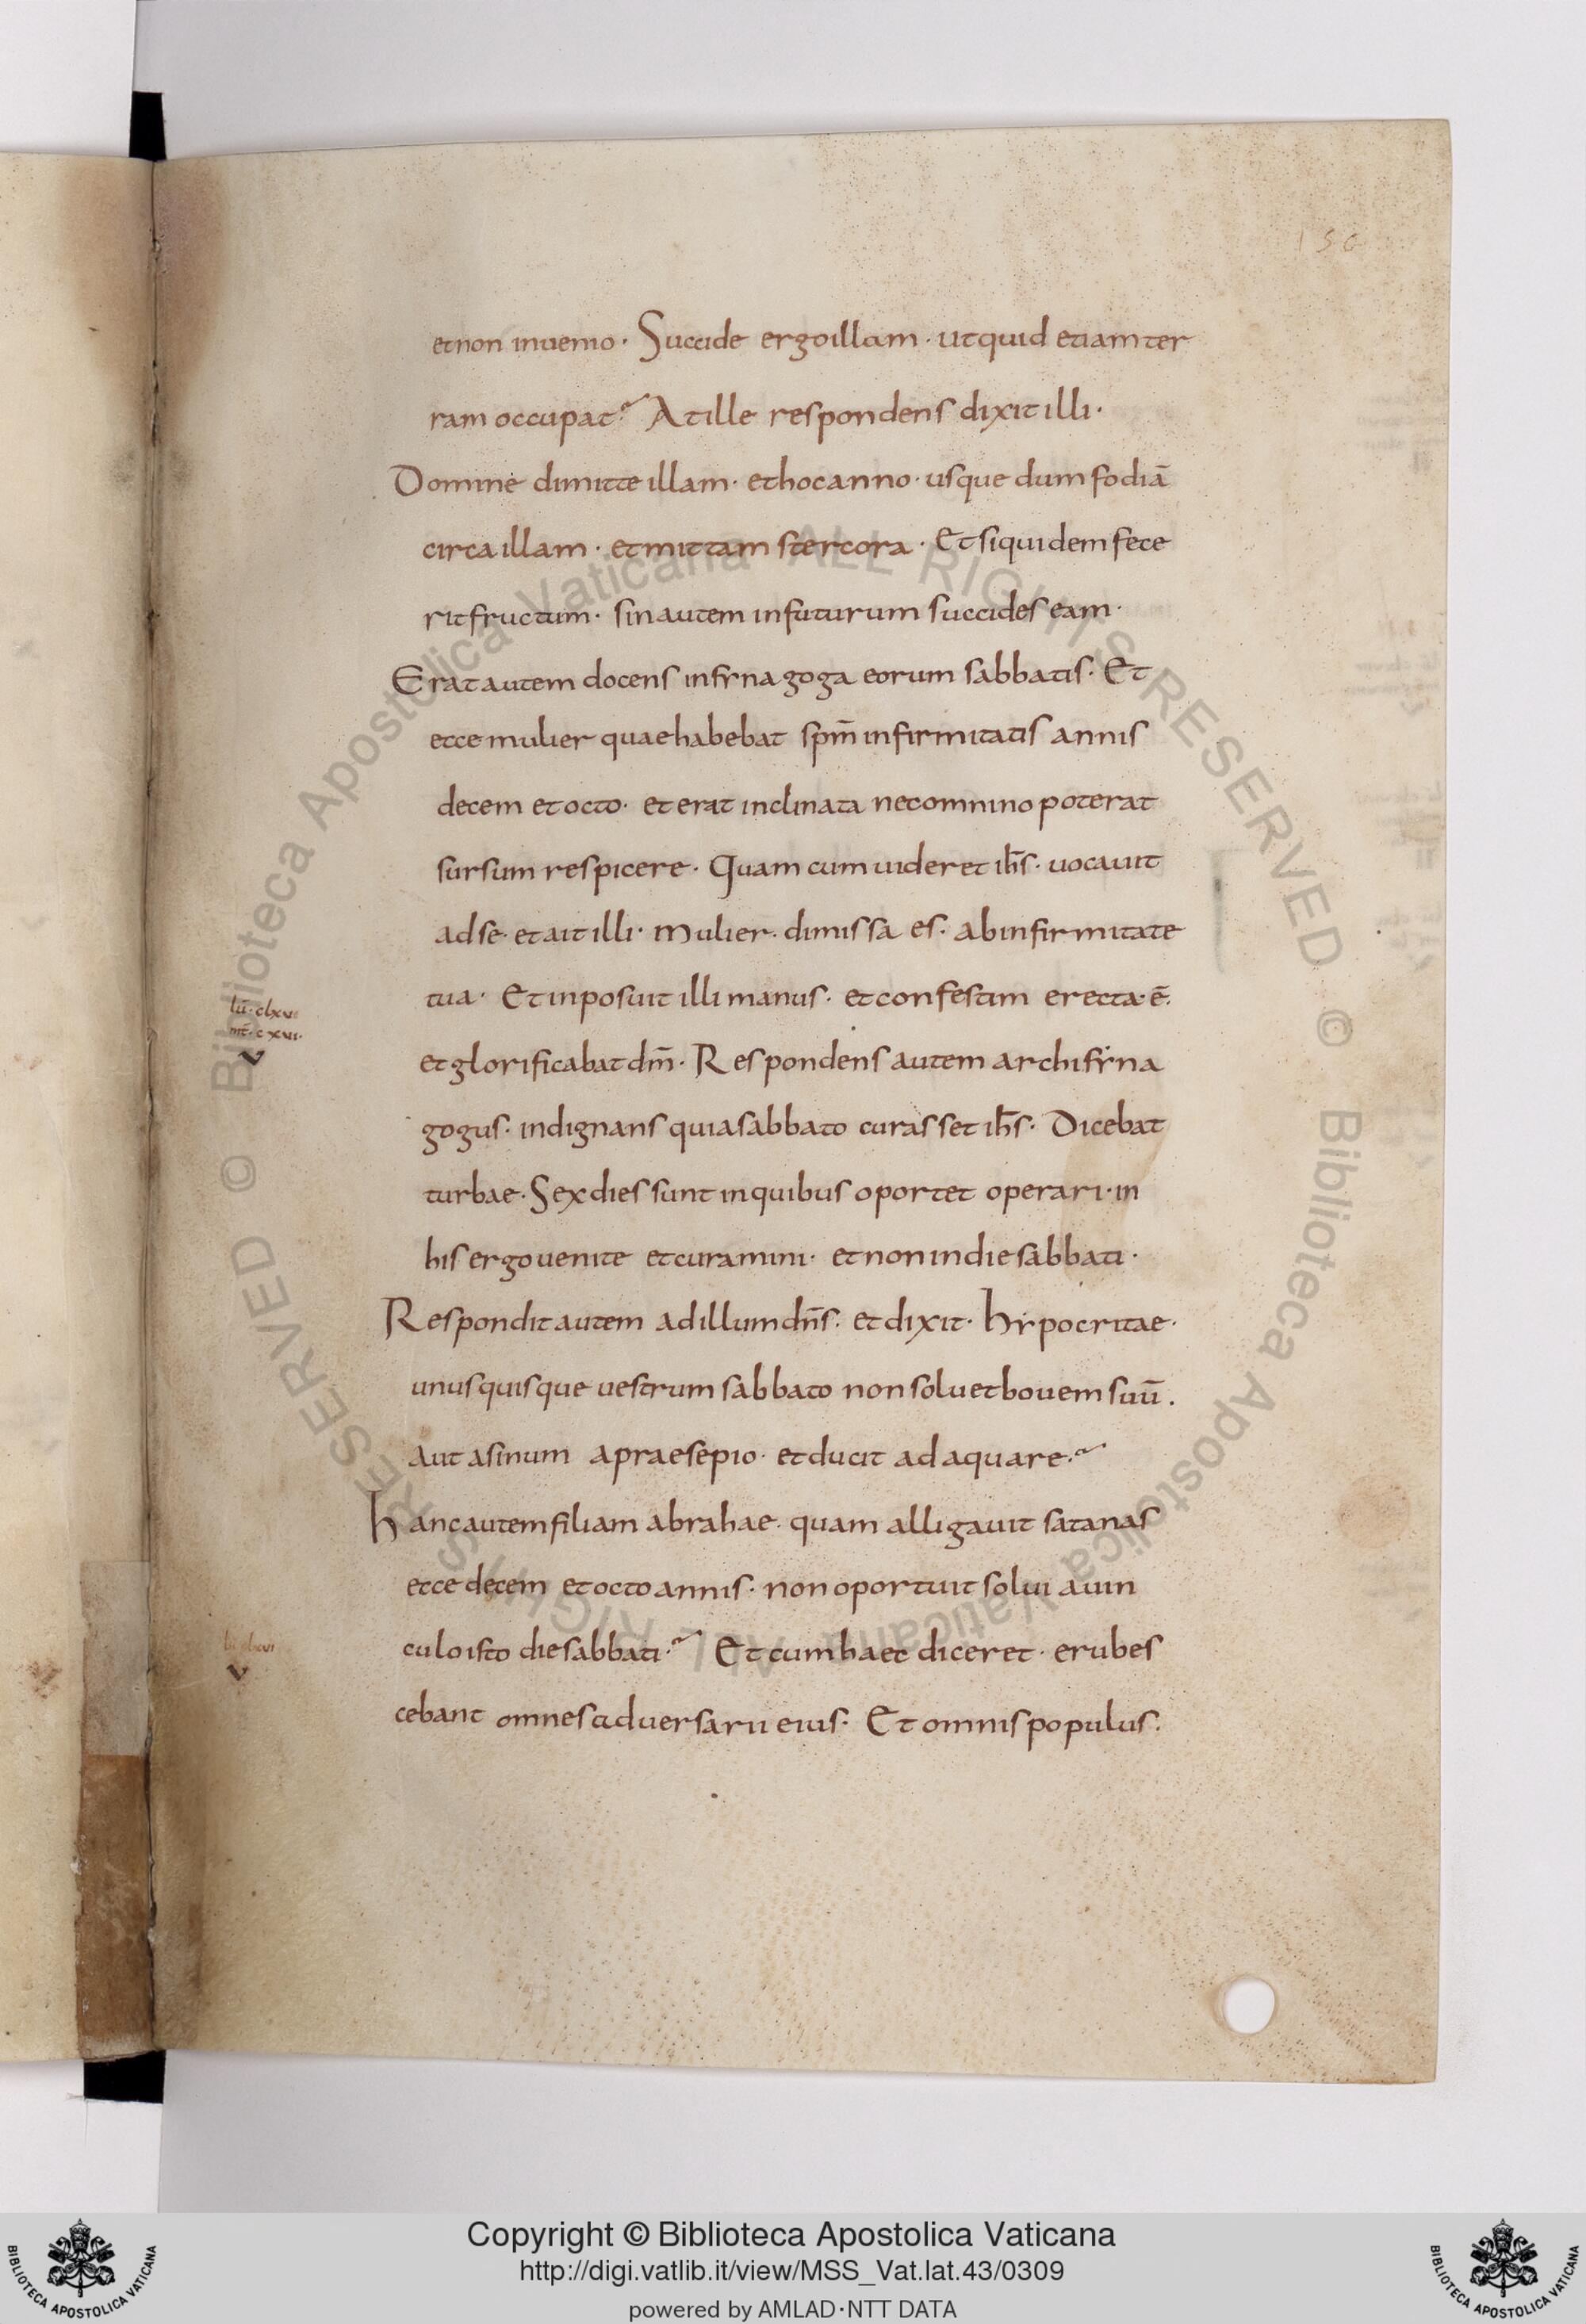 150
et non inuenio · Succide ergo illam · ut quid etiam ter
ram occupat? At ille respondens dixit illi ·
Domine dimitte illam · et hoc anno · usque dum fodiā
circa illam · et mittam stercora · Et siquidem fece
rit fructum · sin autem in futurum succides eam ·
Erat autem docens in synagoga eorum sabbatis · Et
ecce mulier quae habebat spm̄ infirmitatis annis
decem et octo · et erat inclinata nec omnino poterat
sursum respicere · Quam cum uideret ih̄s · uocauit
ad se · et ait illi · Mulier · dimissa es · ab infirmitate
tua · Et inposuit illi manus · et confestim erecta · ē ·
et glorificabat dm̄ · Respondens autem archisyna
gogus · indignans quia sabbato curasset ih̄s · Dicebat
turbae · Sex dies sunt in quibus oportet operari · in
his ergo uenite et curamini · et non in die sabbati ·
Respondit autem ad illum dn̄s · et dixit · hypocritae ·
unusquisque uestrum sabbato non soluet bouem suū ·
aut asinum a praesepio · et ducit adaquare?
hanc autem filiam abrahae · quam alligauit satanas
ecce decem et octo annis · non oportuit solui a uin
culo isto die sabbati? Et cum haec diceret · erubes
cebant omnes aduersarii eius · Et omnis populus ·
Copyright © Biblioteca Apostolica Vaticana
http://digi.vatlib.it/view/MSS_Vat.lat.43/0309
powered by AMLAD·NTT DATA
BIBLIOTECA APOSTOLICA VATICANA
BIBLIOTECA APOSTOLICA VATICANA
© Biblioteca Apostolica Vaticana ALL RIGHTS RESERVED © Biblioteca Apostolica Vaticana ALL RIGHTS RESERVED